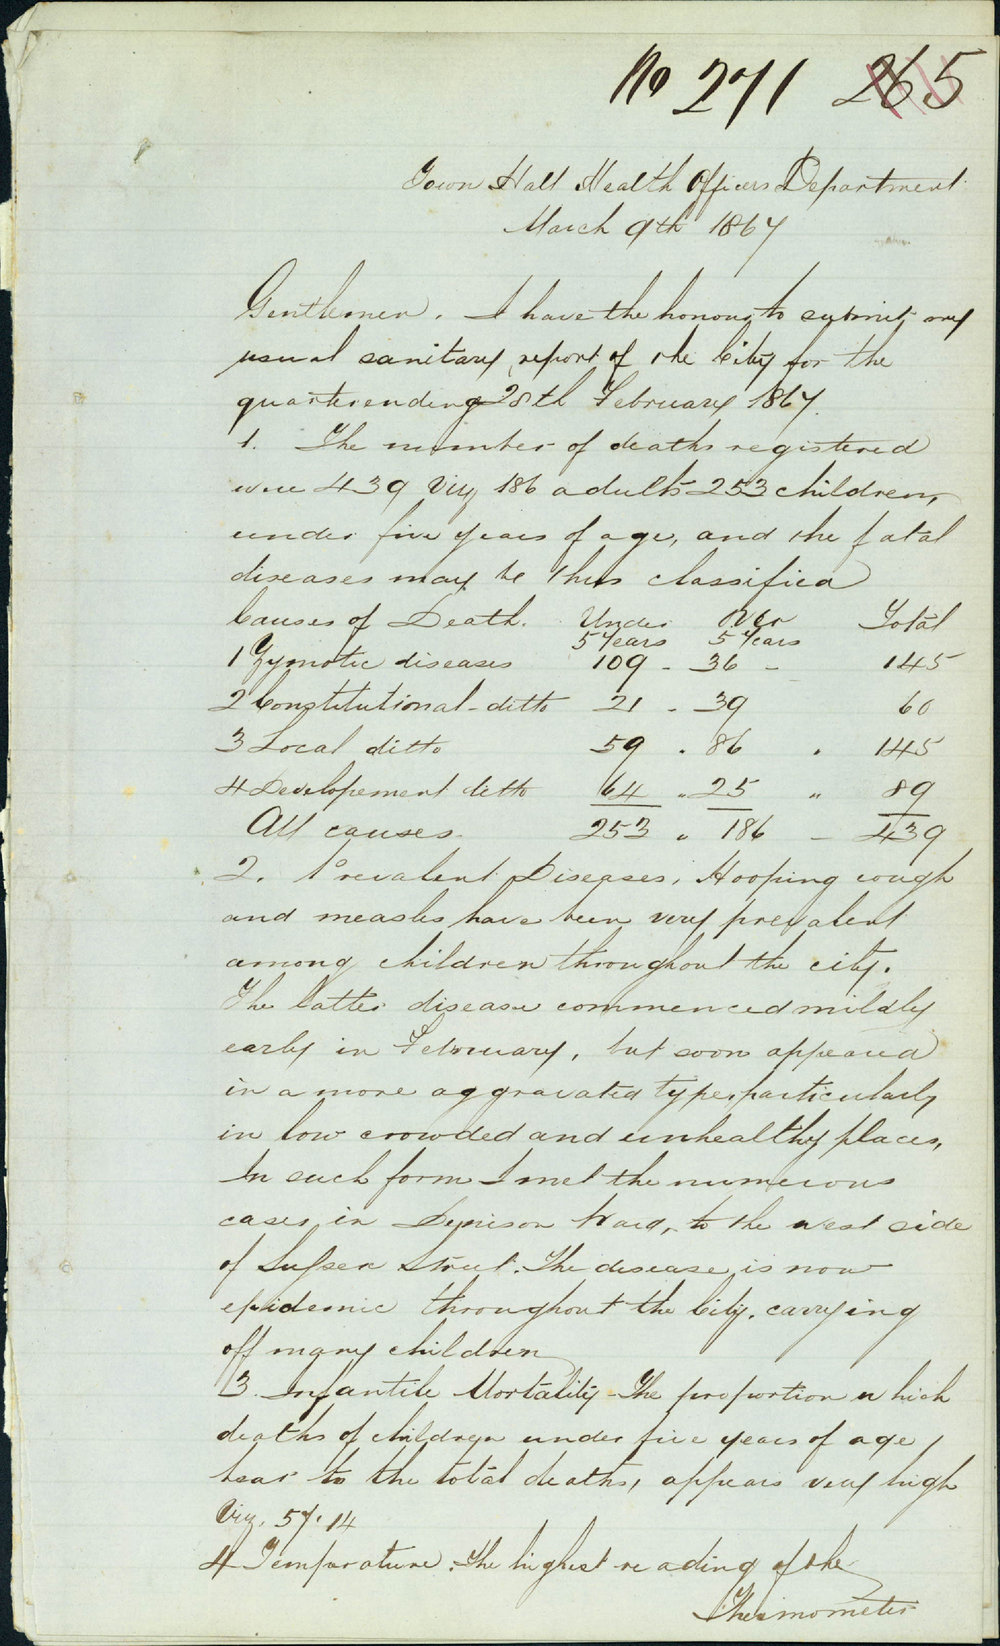 No 271 265
Town Hall Health Officers Department
March 9th 1867
Gentlemen. I have the honour to submit my
usual sanitary report of the City for the
quarter ending 28th February 1867.
1. The number of deaths registered
were 439 Viz 186 adults 253 children,
under five years of age, and the fatal
diseases may be thus classified
Causes of Death. Under 5 Years Over 5 Years Total
1 Zymotic diseases 109 - 36 - 145
2 Constitutional - ditto 21 - 39 60
3 Local ditto 59 " 86 " 145
4 Developement ditto 64 " 25 " 89
All causes. 253 " 186 - 439
2. Prevalent Diseases. Hooping cough
and measles have been very prevalent
among children throughout the city.
The latter disease commenced mildly
early in February, but soon appeared
in a more aggravated type, particularly
in low crowded and unhealthy places,
In such form I met the numerous
cases, in Denison Ward, to the west side
of Sussex Street. The disease is now
epidemic throughout the City. carrying
off many children
3. Infantile Mortality - The proportion which
deaths of children under five years of age,
bear to the total deaths, appears very high
Viz. 57.14
4 Temparature. The highest reading of the
Thermometer